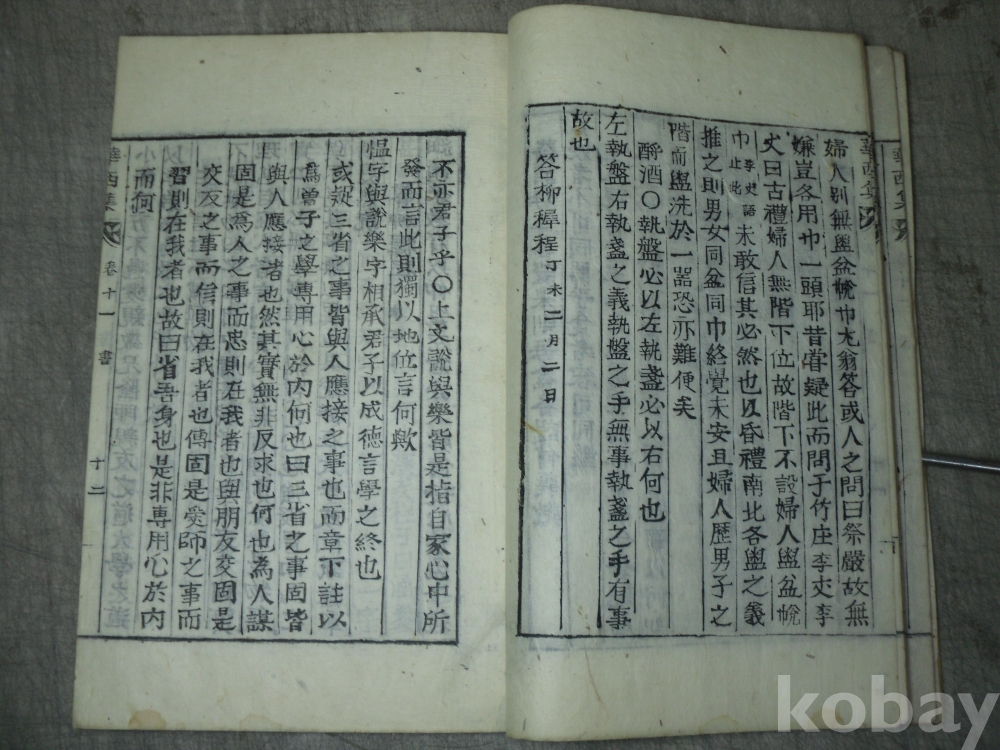 婦人別無盥盆帨巾尤翁答或人之問曰祭嚴故無
嫌豈各用巾一頭耶昔嘗疑此而問于竹庄李丈李
丈曰古禮婦人無階下位故階下不設婦人盥盆帨
巾李史語止此未敢信其必然也以昏禮南北各盥之義
推之則男女同盆同巾終覺未安且婦人歷男子之
階而盥洗於一器恐亦難便矣
酹酒〇執盤必以左執盞必以右何也
左執盤右執盞之義執盤之手無事執盞之手有事
故也
答柳穉程丁未二月二日
不亦君子乎〇上文說與樂皆是指自家心中所
發而言此則獨以地位言何歟
慍字與說樂字相承君子以成德言學之終也
或疑三省之事皆與人應接之事也而章下註以
爲曾子之學專用心於內何也曰三省之事固皆
與人應接者也然其實無非反求也何也為人謀
固是爲人之事而忠則在我者也與朋友交固是
交友之事而信則在我者也傳固是受師之事而
習則在我者也故曰省吾身也是非專用心於內
而何
華西集
卷十一
書
十二
華西集
kobay